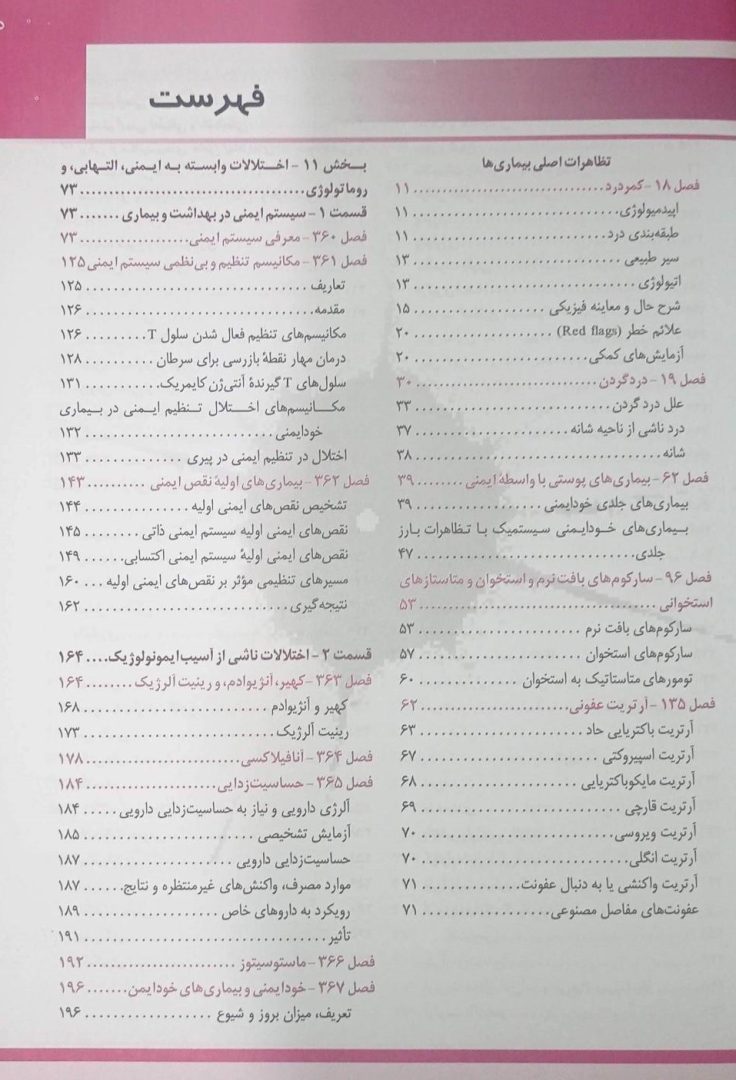 فهرست
تظاهرات اصلی بیماری‌ها
فصل ۱۸ - کمردرد ............................... ۱۱
اپیدمیولوژی ............................... ۱۱
طبقه‌بندی درد ............................... ۱۱
سیر طبیعی ............................... ۱۳
اتیولوژی ............................... ۱۳
شرح حال و معاینه فیزیکی .................... ۱۵
علائم خطر (Red flags) .................... ۲۰
آزمایش‌های کمکی ......................... ۲۰
فصل ۱۹ - درد گردن ......................... ۳۰
علل درد گردن ............................ ۳۳
درد ناشی از ناحیه شانه .................... ۳۷
شانه .................................. ۳۸
فصل ۶۲ - بیماری‌های پوستی با واسطهٔ ایمنی ......... ۳۹
بیماری‌های جلدی خودایمنی ................. ۳۹
بیماری‌های خودایمنی سیستمیک با تظاهرات بارز
جلدی ................................. ۴۷
فصل ۹۶ - سارکوم‌های بافت نرم و استخوان و متاستازهای
استخوانی ............................... ۵۳
سارکوم‌های بافت نرم ...................... ۵۳
سارکوم‌های استخوان ...................... ۵۷
تومورهای متاستاتیک به استخوان ............. ۶۰
فصل ۱۳۵ - آرتریت عفونی .................... ۶۲
آرتریت باکتریایی حاد ..................... ۶۳
آرتریت اسپیروکتی ........................ ۶۷
آرتریت مایکوباکتریایی .................... ۶۸
آرتریت قارچی ........................... ۶۹
آرتریت ویروسی .......................... ۷۰
آرتریت انگلی ............................ ۷۰
آرتریت واکنشی یا به دنبال عفونت ............ ۷۱
عفونت‌های مفاصل مصنوعی .................. ۷۱
بخش ۱۱ - اختلالات وابسته به ایمنی، التهابی، و
روماتولوژی ............................... ۷۳
قسمت ۱ - سیستم ایمنی در بهداشت و بیماری ....... ۷۳
فصل ۳۶۰ - معرفی سیستم ایمنی ................ ۷۳
فصل ۳۶۱ - مکانیسم تنظیم و بی‌نظمی سیستم ایمنی ۱۲۵
تعاریف ............................... ۱۲۵
مقدمه ................................ ۱۲۶
مکانیسم‌های تنظیم فعال شدن سلول T ......... ۱۲۶
درمان مهار نقطهٔ بازرسی برای سرطان .......... ۱۲۸
سلول‌های T گیرندهٔ آنتی‌ژن کایمریک .......... ۱۳۱
مکانیسم‌های اختلال تنظیم ایمنی در بیماری
خودایمنی ............................. ۱۳۲
اختلال در تنظیم ایمنی در پیری .............. ۱۳۳
فصل ۳۶۲ - بیماری‌های اولیهٔ نقص ایمنی .......... ۱۴۳
تشخیص نقص‌های ایمنی اولیه ............... ۱۴۴
نقص‌های ایمنی اولیه سیستم ایمنی ذاتی ....... ۱۴۵
نقص‌های ایمنی اولیهٔ سیستم ایمنی اکتسابی ...... ۱۴۹
مسیرهای تنظیمی مؤثر بر نقص‌های ایمنی اولیه ... ۱۶۰
نتیجه‌گیری ............................ ۱۶۲
قسمت ۲ - اختلالات ناشی از آسیب ایمونولوژیک .... ۱۶۴
فصل ۳۶۳ - کهیر، آنژیوادم، و رینیت آلرژیک ........ ۱۶۴
کهیر و آنژیوادم ......................... ۱۶۸
رینیت آلرژیک .......................... ۱۷۳
فصل ۳۶۴ - آنافیلاکسی ..................... ۱۷۸
فصل ۳۶۵ - حساسیت‌زدایی ................... ۱۸۴
آلرژی دارویی و نیاز به حساسیت‌زدایی دارویی ..... ۱۸۴
آزمایش تشخیصی ........................ ۱۸۵
حساسیت‌زدایی دارویی .................... ۱۸۷
موارد مصرف، واکنش‌های غیرمنتظره و نتایج ...... ۱۸۷
رویکرد به داروهای خاص ................... ۱۸۹
تأثیر ................................. ۱۹۱
فصل ۳۶۶ - ماستوسیتوز ..................... ۱۹۲
فصل ۳۶۷ - خودایمنی و بیماری‌های خودایمن ....... ۱۹۶
تعریف، میزان بروز و شیوع .................. ۱۹۶